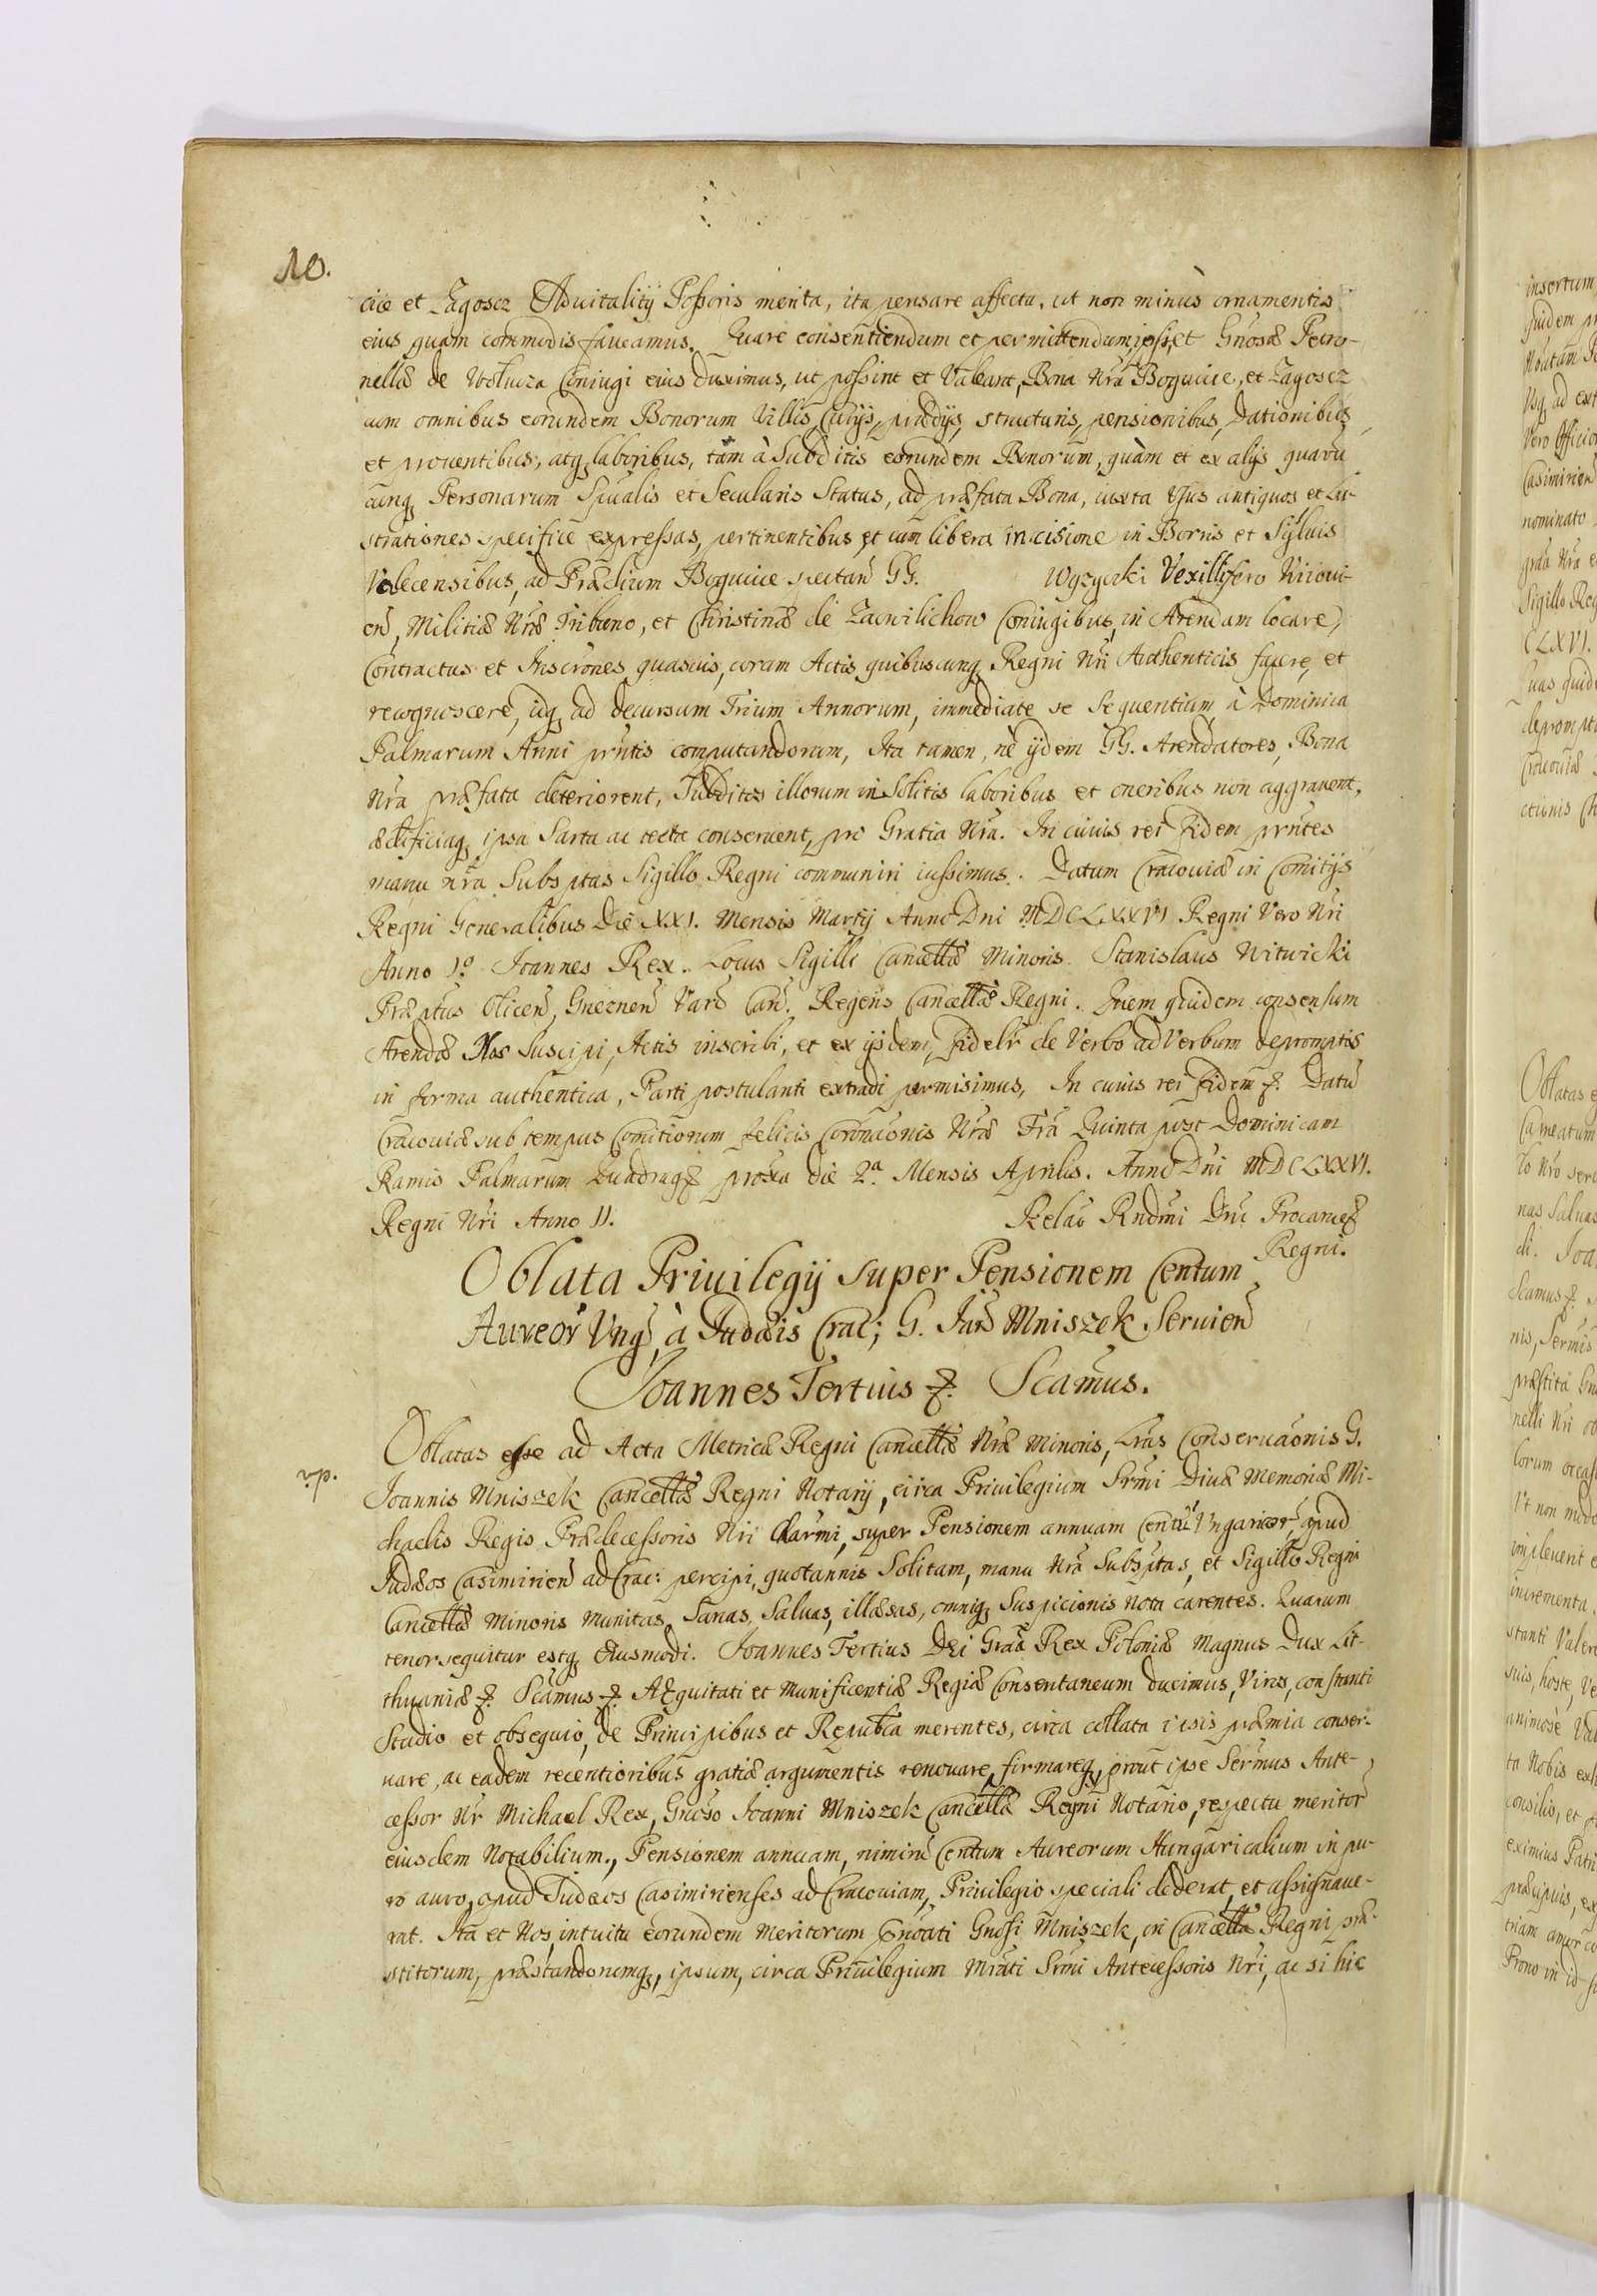 10.
ciæ et Zagoscz Aduitalitÿ Possoris merita, ita pensare affectu, ut non minùs ornamentis
eius quàm commodis faueamus. Quare consentiendum et permittendum ipsi, et Gnosæ Petro-
nellæ de Wolucza Coniugi eius duximus, ut possint et Valeant, Bona Nrã Bogucice, et Zagoscz
cum omnibus eorundem Bonorum Villis, Curijs, prædijs, structuris, pensionibus, Dationibus
et prouentibus, atq laboribus, tàm à Subditis eorundem Bonorum, quàm et ex alijs quarũ
cunq Personarum Spũalis et Secularis Status, ad præfata Bona, iuxta Vsus antiquos et Lu-
strationes specificè expressas, pertinentibus, et cum libera incisione in Borris et Syluis
Volecensibus, ad Prædium Bogucice spectañ GG. Wyzycki Vexillifero Kiioui-
eñ, Militiæ Nræ Tribuno, et Christinæ de Zacwilichow Coniugibus, in Arendam locare,
Contractus et Inscrõnes quasuis, coram Actis quibuscunq Regni Nri Authenticis facere, et
recognoscere, idq ad decursum Trium Annorum, immediatè se sequentium à Dominica
Palmarum Anni prñtis computandorum, Ita tamen, nè ijdem GG. Arendatores, Bona
Nrã præfata deteriorent, Subditos illorum insolitis laboribus et oneribus non aggrauent,
ædificiaq ipsa Sarta ac tecta conseruent, pro Gratia Nrã. In cuius rei fidem prñtes
manu nrã Subsptas Sigillo Regni communiri iussimus. Datum Cracouiæ in Comitijs
Regni Generalibus Die XXI. Mensis Martij Anno Dni MDCLXXVI Regni Vero Nri
Anno 1º Joannes Rex. Locus Sigilli Cancellæ Minoris. Stanislaus Witwicki
Præptus Olicen̄, Gneznen̄ Vars̄ Can̄. Regens Cancellæ Regni. Quem quidem consensum
Arendæ Nos Suscipi, Actis inscribi, et ex ijsdem, fidelr de Verbo ad Verbum depromptis
in forma authentica, Parti postulanti extradi permisimus, In cuius rei fidem &. Datũ
Cracouiæ sub tempus Comitiorum felicis Coronaõnis Nræ Fra Quinta post Dominicam
Ramis Palmarum Quadrag& proxa die 2ª Mensis Aprilis. Anno Dni MDCLXXVI.
Regni Nri Anno II. Relaõ Rndmi Dni Procanc&
Regni.
Oblata Priuilegij super Pensionem Centum
Aureor̃ Vng, à Judæis Crac; G. Jañ Mniszek Seruien̄
Joannes Tertius &. Scamus.
vp.
Oblatas esse ad Acta Metricæ Regni Cancellæ Nræ Minoris, Lras Conseruaõnis G.
Joannis Mniszek Cancellæ Regni Notarij, circa Priuilegium Srmi Diuæ Memoriæ Mi-
chaelis Regis Prædecessoris Nri Charmi, super Pensionem annuam Centũ Vngaricor̃, apud
Judæos Casimirien̄ ad Crac: percipi, quotannis Solitam, manu Nrã Subsptas, et Sigillo Regni
Cancellæ Minoris Munitas, Sanas, Saluas, illæsas, omniq Suspicionis Nota carentes. Quarum
tenor sequitur estq Eiusmodi. Joannes Tertius Dei Grãa Rex Poloniæ Magnus Dux Lit-
thuaniæ &. Scamus &. AEquitati et Munificentiæ Regiæ Consentaneum ducimus, Viros, constanti
Studio et obsequio, de Principibus et Republca merentes, circa collata ipsis præmia conser-
uare, ac eadem recentioribus gratiæ argumentis renouare, firmareq, prout ipse Sermus Ante-
cessor Nr Michael Rex, Gnoso Joanni Mniszek Cancellæ Regni Notario, respectu meritor̃
eiusdem Notabilium, Pensionem annuam, nimirũ Centum Aureorum Hungaricalium in pu-
ro auro, apud Judæos Casimirienses ad Cracouiam, Priuilegio speciali dederat, et assignaue-
rat. Ita et Nos, intuitu eorundem Meritorum Gnosi Mniszek, in Cancella Regni præ-
stitorum, præstandorumq, ipsum, circa Priuilegium Mrati Srmi Antecessoris Nri, ac si hic